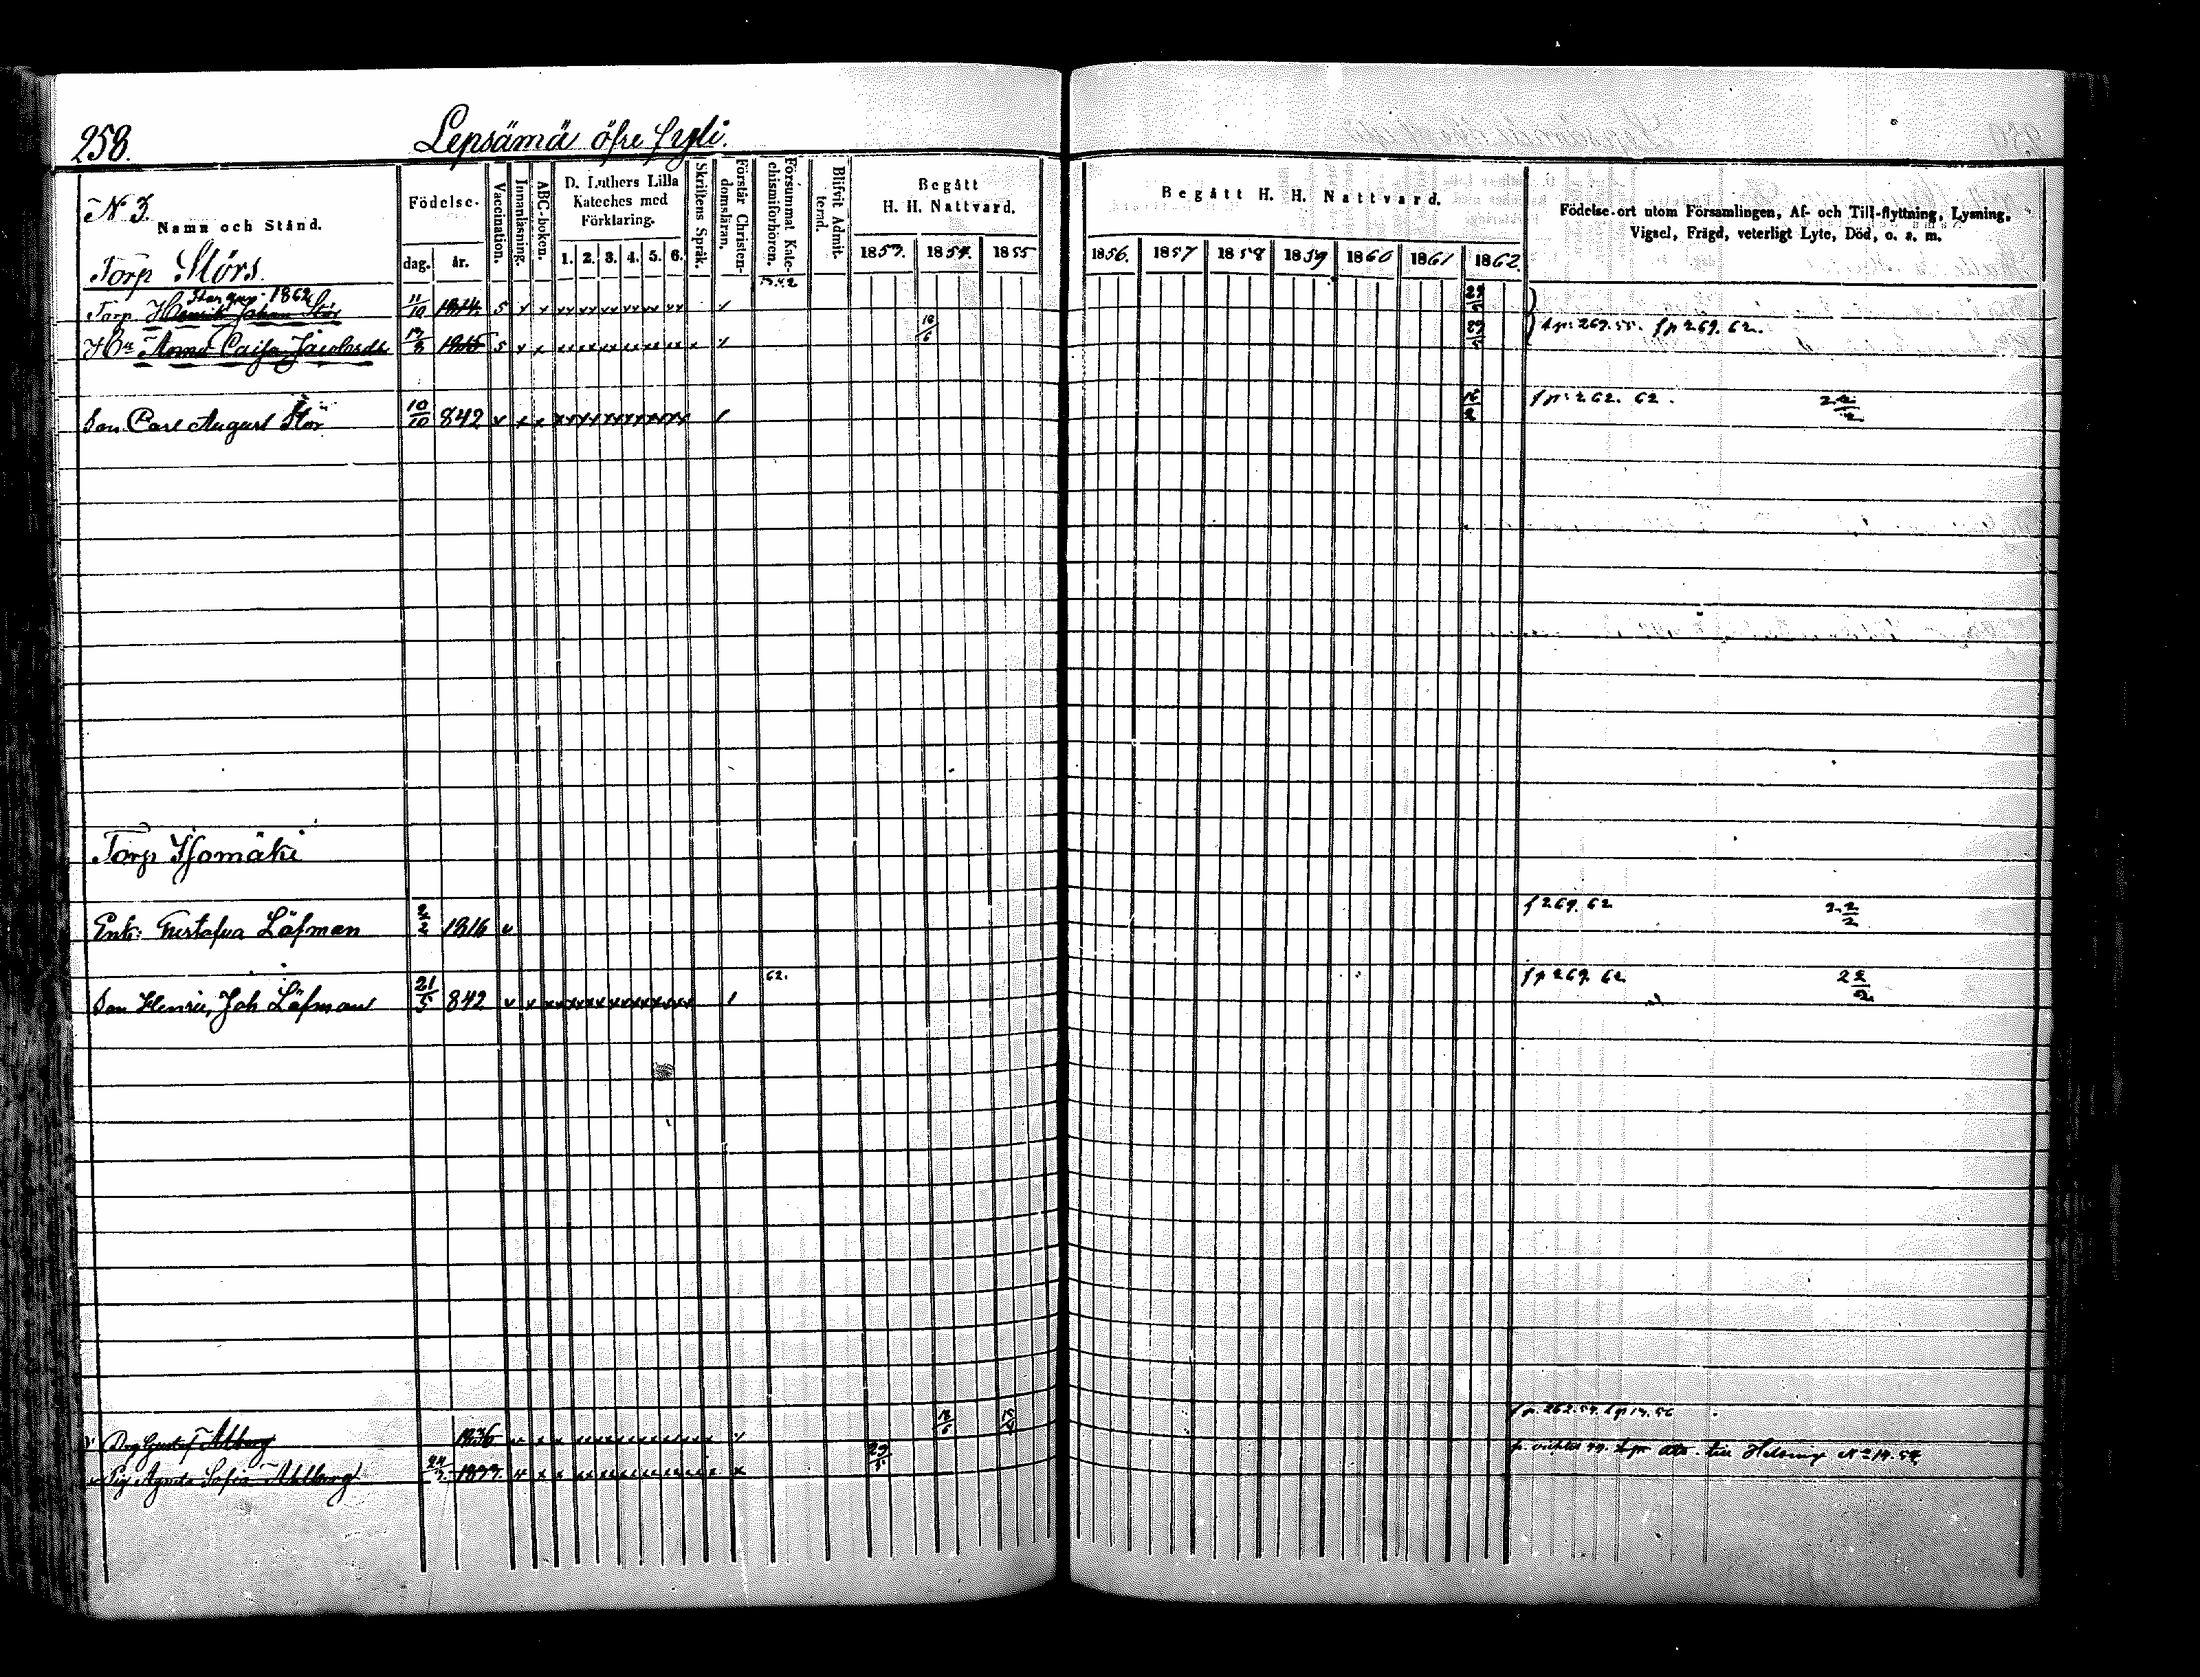 258.
Lepsämä öfre fyli.
N 3.
Namn och Stånd.
Födelse.
dag. år.
Vaccination.
Innanläsning.
ABC-boken.
D. Luthers Lilla
Kateches med
Förklaring.
1. 2. 3. 4. 5. 6.
Skriftens Språk.
Förstår Christen-
domsläran.
Försummat Kate-
chismiförhören.
Blifvit Admit-
terad.
Begått
H. H. Nattvard.
1853. 1854. 1855
Begått H. H. Nattvard.
1856. 1857 1858 1859 1860 1861 1862.
Födelse-ort utom Församlingen, Af- och Till-flyttning, Lysning,
Vigsel, Frägd, veterligt Lyte, Död, o. s. m.
Torp Störs.
1862
Torp. Henrik Johan Stör 11/10 1814 s
Hu Anna Caisa Jacobsdr 1815 s 18/6 269.55. fp 269. 62.
Son Carl August Stör 10/10 842 v fp: 262. 62. 22/2
Torp Isomäki
Enk: Gustafva Löfman 2/2 1816 v f 269. 62 22/2
Son Henric Joh Löfman 21/5 842 v 62. fp 269. 62 22/2
Drg Gustaf Ahlberg 1836 fp. 262.54.
Pig Agneta Sofia Ahlberg 29/5 till Helsing N 14. 54